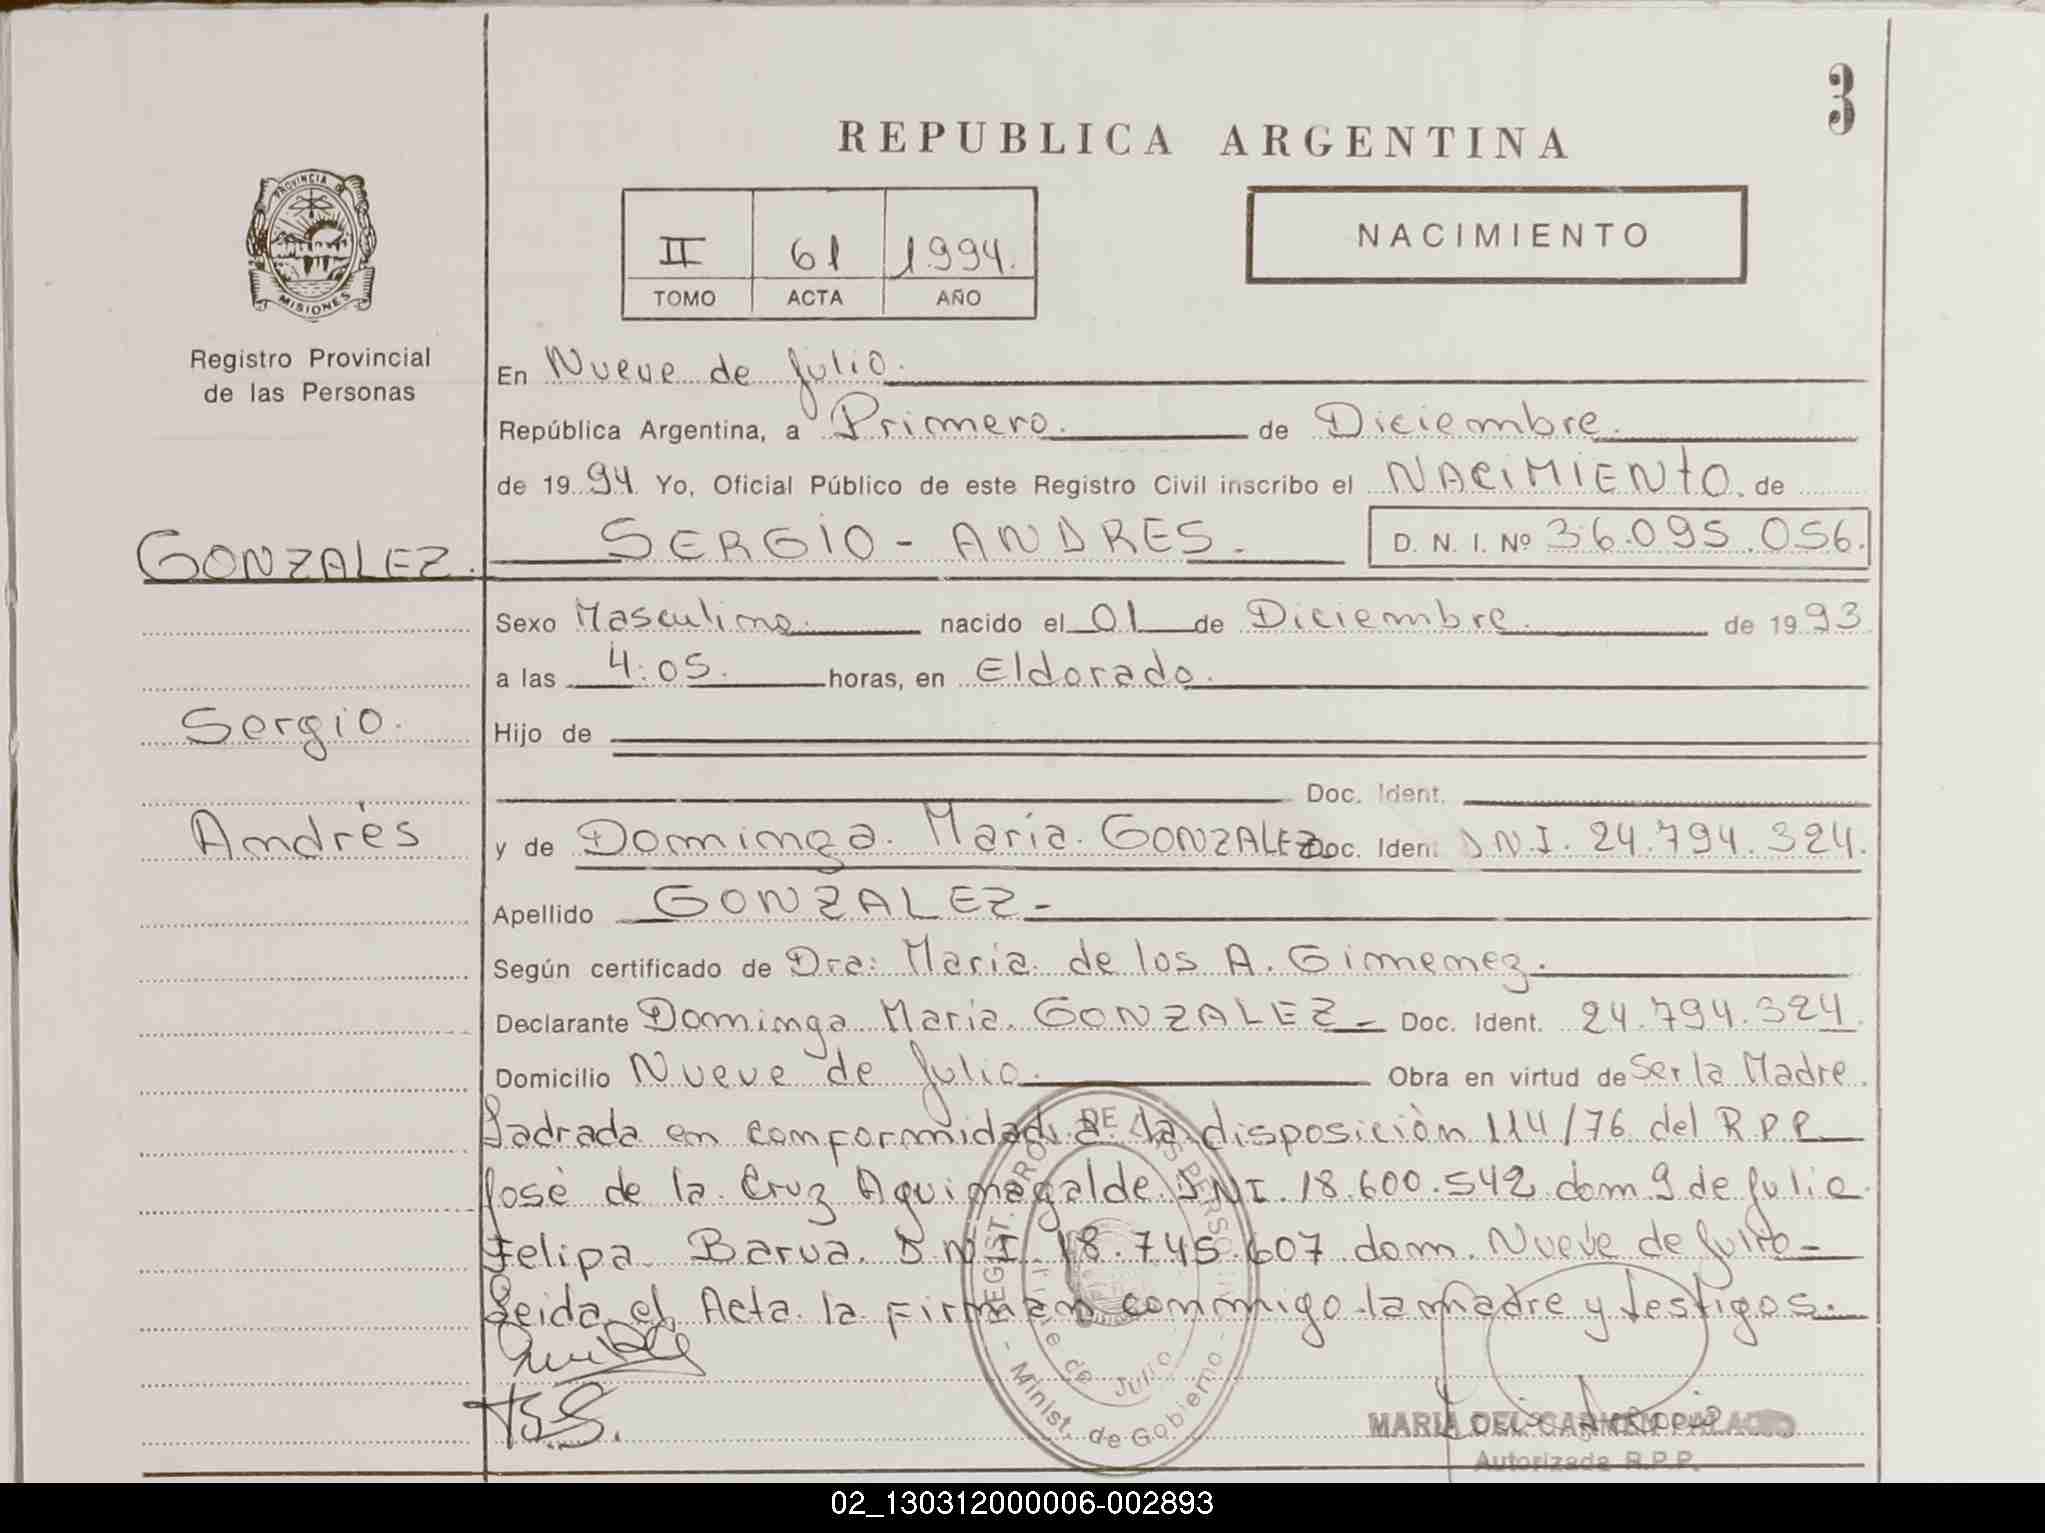 3
REPUBLICA ARGENTINA
PROVINCIA DE
MISIONES
Registro Provincial
de las Personas
II 61 1994.
TOMO ACTA AÑO
NACIMIENTO
En Nueve de Julio.
República Argentina, a Primero. de Diciembre.
de 19 94 Yo, Oficial Público de este Registro Civil inscribo el NACIMIENTO. de
GONZALEZ. SERGIO - ANDRES. D. N. I. Nº 36.095.056.
Sexo Masculino. nacido el 01 de Diciembre. de 19 93
a las 4:05. horas, en Eldorado.
Sergio. Hijo de
Doc. Ident.
Andrès y de Dominga. Maria. GONZALEZ Doc. Ident D.N.I. 24.794.324.
Apellido GONZALEZ-
Según certificado de Dra: Maria de los A. Gimenez.
Declarante Dominga Maria. GONZALEZ- Doc. Ident. 24.794.324.
Domicilio Nueve de Julio. Obra en virtud de Ser la Madre.
Ladrada en conformidad a la disposiciòn 114/76 del R P P
Josè de la Cruz Aquimagalde. DNI. 18.600.542 dom 9 de Julio.
Felipa Barua. D N I 18.745.607 dom. Nueve de Julio-
Leida el Acta la Firman conmigo la madre y testigos.-
REGIST. PROV. DE LAS PERSONAS
Nueve de Julio
- Minist. de Gobierno -
MARIA DEL CARMEN PALACIO
Autorizada R.P.P.
02_130312000006-002893